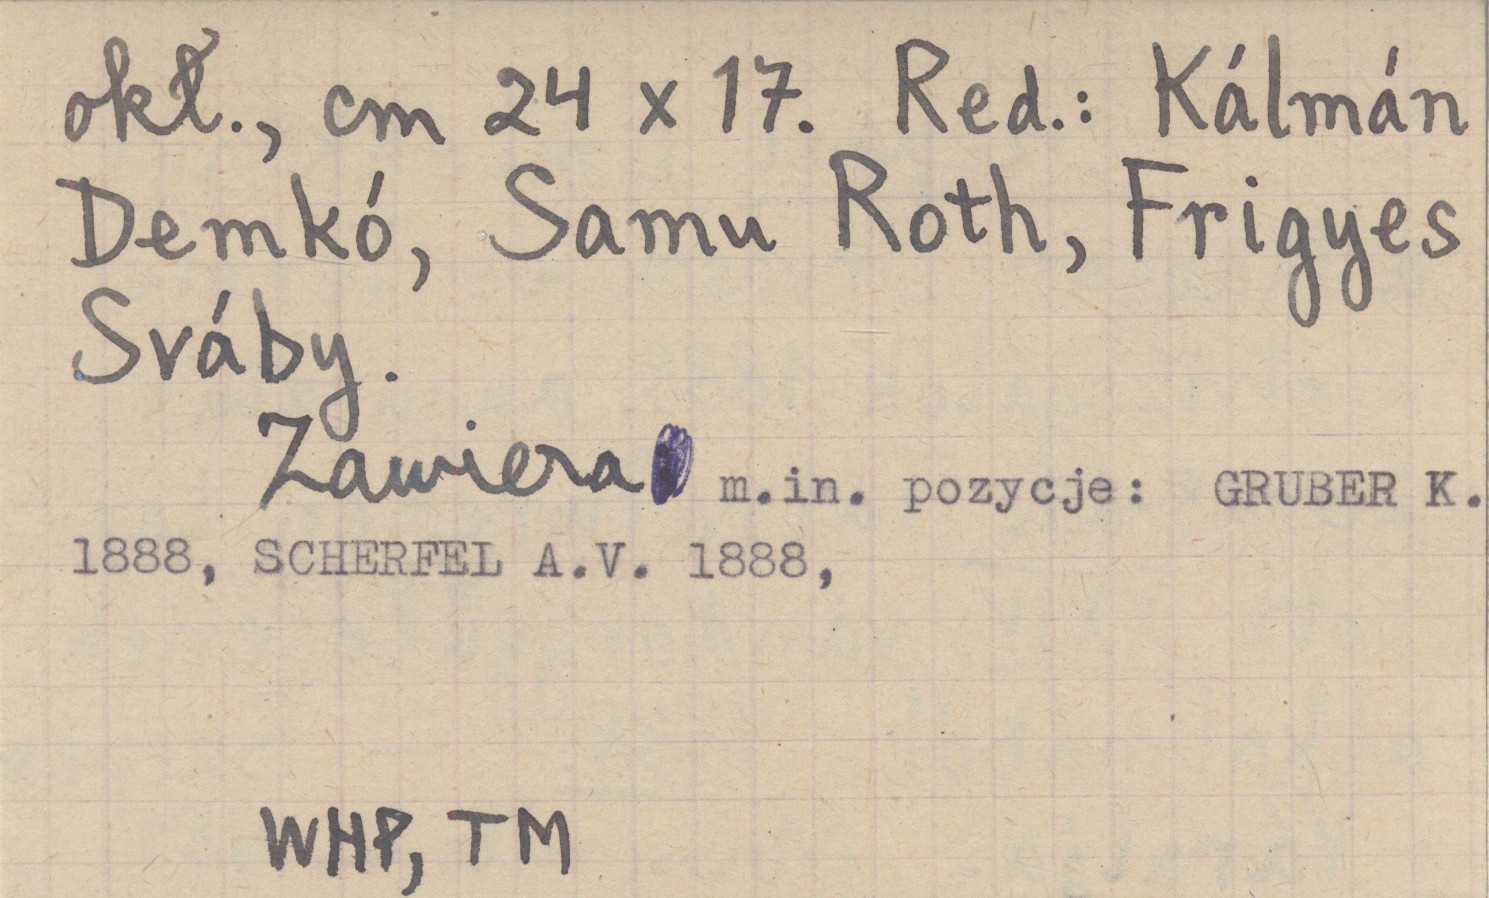 okł., cm 24 x 17. Red.: Kálmán
Demkó, Samu Roth, Frigyes
Sváby.
Zawiera m.in. pozycje: GRUBER K.
1888, SCHERFEL A.V. 1888,
WHP, TM